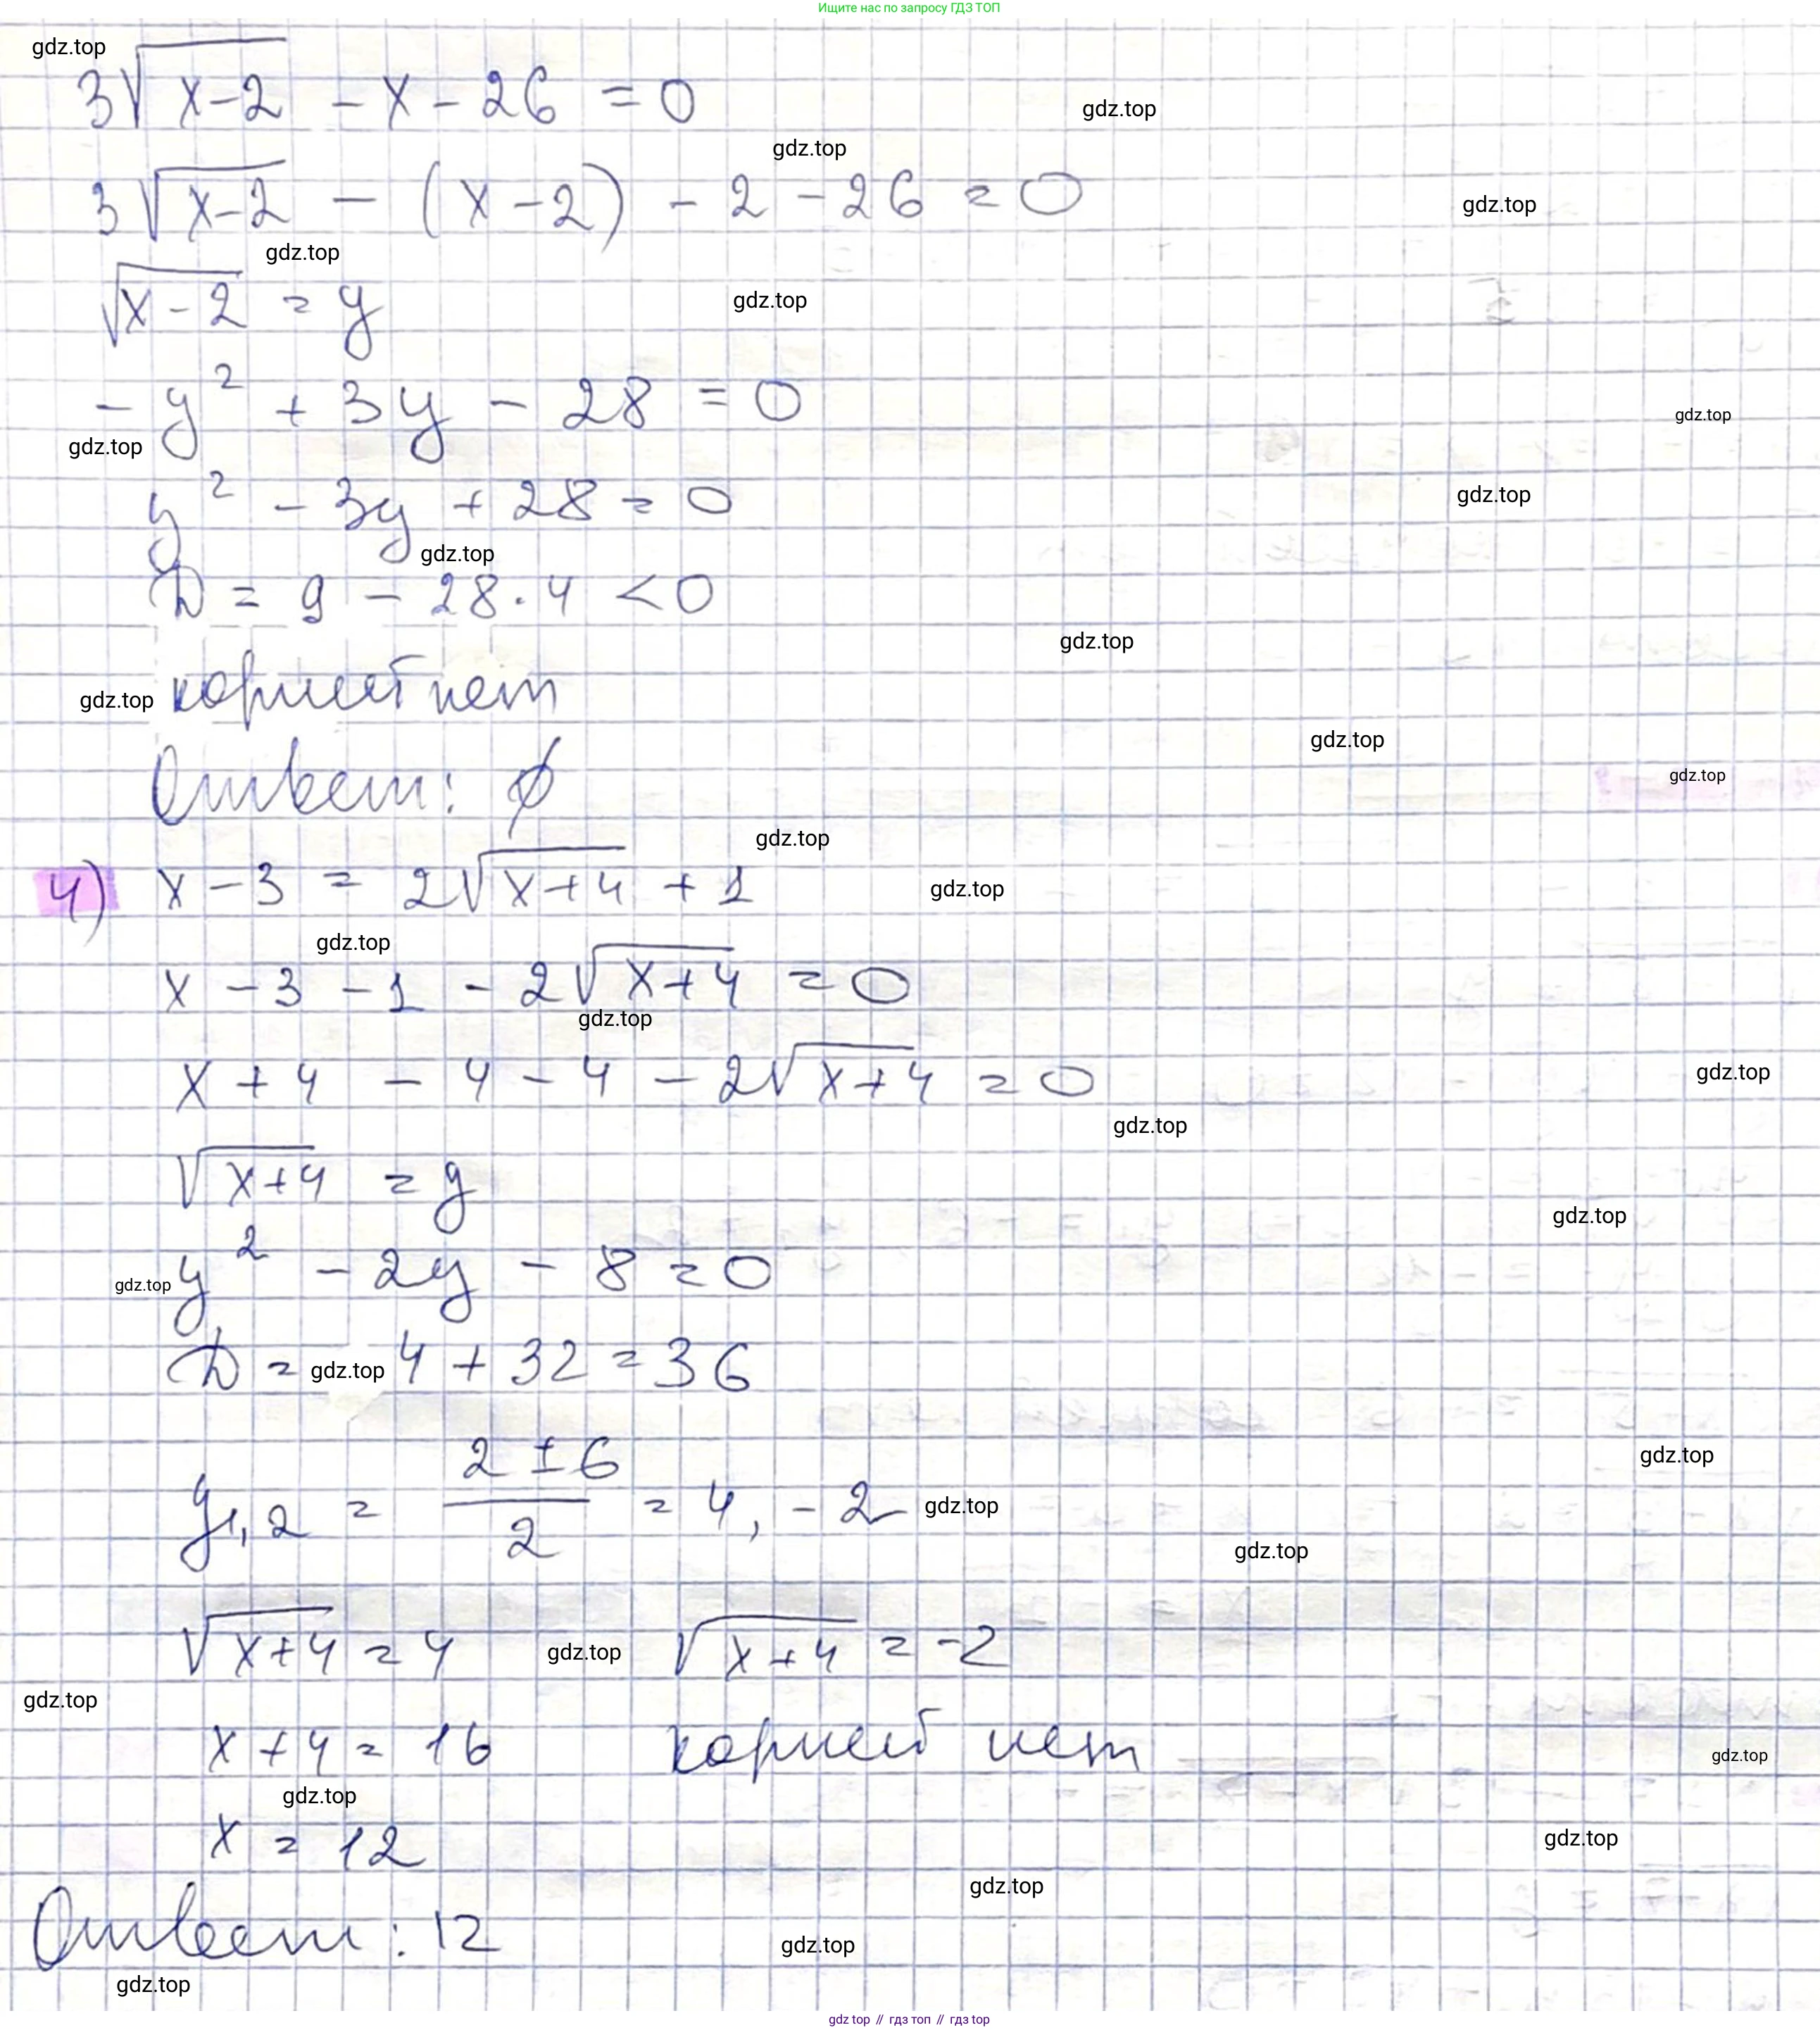 Ищите нас по запросу ГДЗ ТОП
gdz.top
3√(x-2) - x - 26 = 0
gdz.top
gdz.top
3√(x-2) - (x-2) - 2 - 26 = 0
gdz.top
gdz.top
√(x-2) = y
gdz.top
-y² + 3y - 28 = 0
gdz.top
gdz.top
y² - 3y + 28 = 0
gdz.top
gdz.top
D = 9 - 28·4 < 0
gdz.top
gdz.top корней нет
gdz.top
Ответ: ∅
gdz.top
gdz.top
4) x - 3 = 2√(x+4) + 1
gdz.top
gdz.top
x - 3 - 1 - 2√(x+4) = 0
gdz.top
x + 4 - 4 - 4 - 2√(x+4) = 0
gdz.top
gdz.top
√(x+4) = y
gdz.top
y² - 2y - 8 = 0
gdz.top
D = 4 + 32 = 36
gdz.top
gdz.top
y1,2 = (2 ± 6)/2 = 4, -2
gdz.top
gdz.top
√(x+4) = 4 gdz.top √(x+4) = -2
gdz.top
x + 4 = 16 корней нет
gdz.top
gdz.top
x = 12
gdz.top
gdz.top
Ответ: 12
gdz.top
gdz.top
gdz top // гдз топ // гдз top